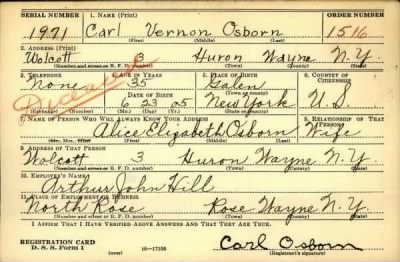 SERIAL NUMBER 1. NAME (Print) ORDER NUMBER
1971 Carl Vernon Osborn 1516
(First) (Middle) (Last)
2. ADDRESS (Print)
Wolcott 3 Huron Wayne N.Y.
(Number and street or R. F. D. number) (Town) (County) (State)
3. TELEPHONE 4. AGE IN YEARS 5. PLACE OF BIRTH 6. COUNTRY OF CITIZENSHIP
None 35 Galen
DATE OF BIRTH (Town or county)
6 23 05 New York U.S.
(Mo.) (Day) (Yr.) (State or country)
7. NAME OF PERSON WHO WILL ALWAYS KNOW YOUR ADDRESS 8. RELATIONSHIP OF THAT PERSON
Alice Elizabeth Osborn Wife
(Mr., Mrs., Miss) (First) (Middle) (Last)
9. ADDRESS OF THAT PERSON
Wolcott 3 Huron Wayne N.Y.
(Number and street or R. F. D. number) (Town) (County) (State)
10. EMPLOYER'S NAME
Arthur John Hill
11. PLACE OF EMPLOYMENT OR BUSINESS
North Rose Rose Wayne N.Y.
(Number and street or R. F. D. number) (Town) (County) (State)
I AFFIRM THAT I HAVE VERIFIED ABOVE ANSWERS AND THAT THEY ARE TRUE.
REGISTRATION CARD
D. S. S. Form 1 (over) 16—17105 Carl Osborn
(Registrant's signature)